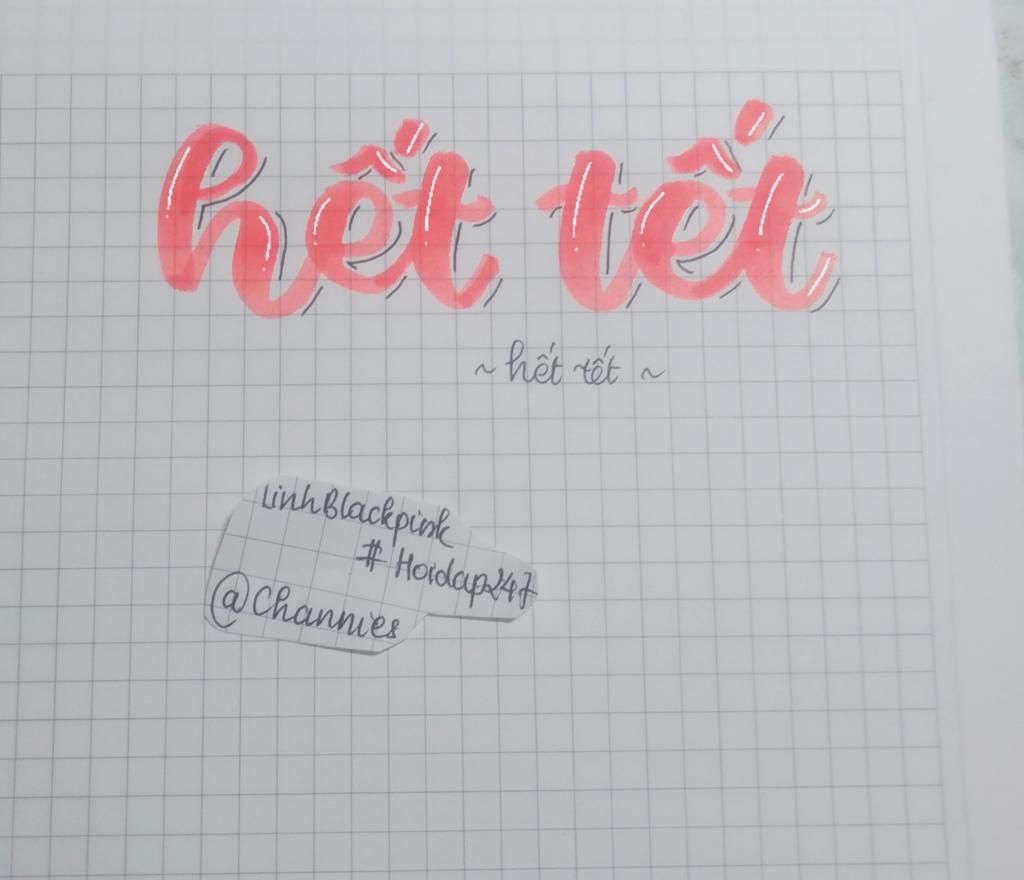 hết tết
~ hết tết ~
LinhBlackpink
# Hoidap247
@Channies